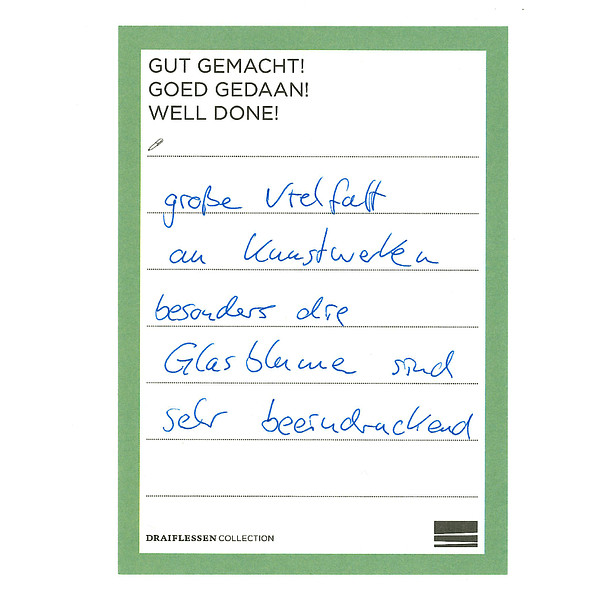 GUT GEMACHT!
GOED GEDAAN!
WELL DONE!
große Vielfalt
an Kunstwerken
besonders die
Glasblume sind
sehr beeindruckend
DRAIFLESSEN COLLECTION